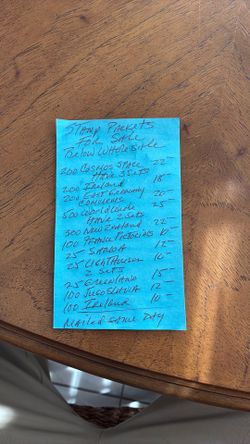 STAMP PACKETS
FOR SALE
BELOW WHOLESALE
200 COSMOS SPACE 22-
HAVE 3 SETS
200 IRELAND 18-
200 EAST GERMANY 20-
COMMEMS
500 WORLDWIDE 25
HAVE 2 SETS
300 NEW ZEALAND 22-
100 FRANCE PICTORIALS 10-
25 SAMOA 12-
25 LIGHTHOUSES 10-
2 SETS
25 GREENLAND 15-
100 JUGOSLAVIA 12-
100 IRELAND 10-
MAILED SAME DAY